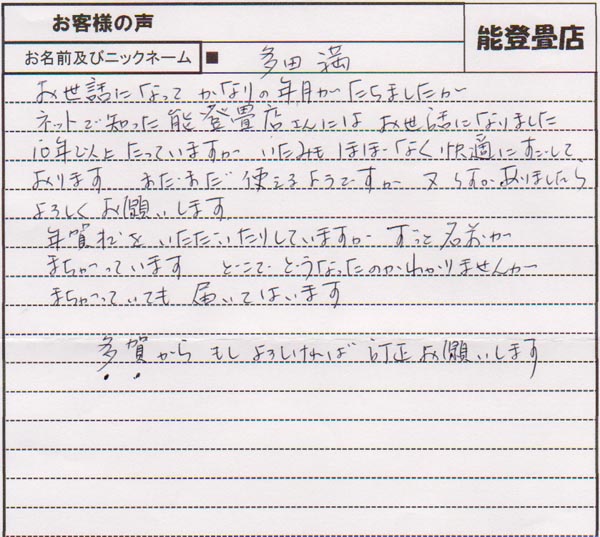 お客様の声
能登畳店
お名前及びニックネーム ■ 多田 満
お世話になって かなりの年月がたちましたが
ネットで知った能登畳店さんには お世話になりました
10年以上たっていますが いたみもほぼなく快適にすごして
おります まだまだ使えるようですが 又 ありましたら
よろしくお願いします
年賀状をいただいたりしていますが ずっと名前が
まちがっています どこでどうなったのかわかりませんが
まちがっていても 届いてはいます
多賀から もしよろしければ 訂正お願いします